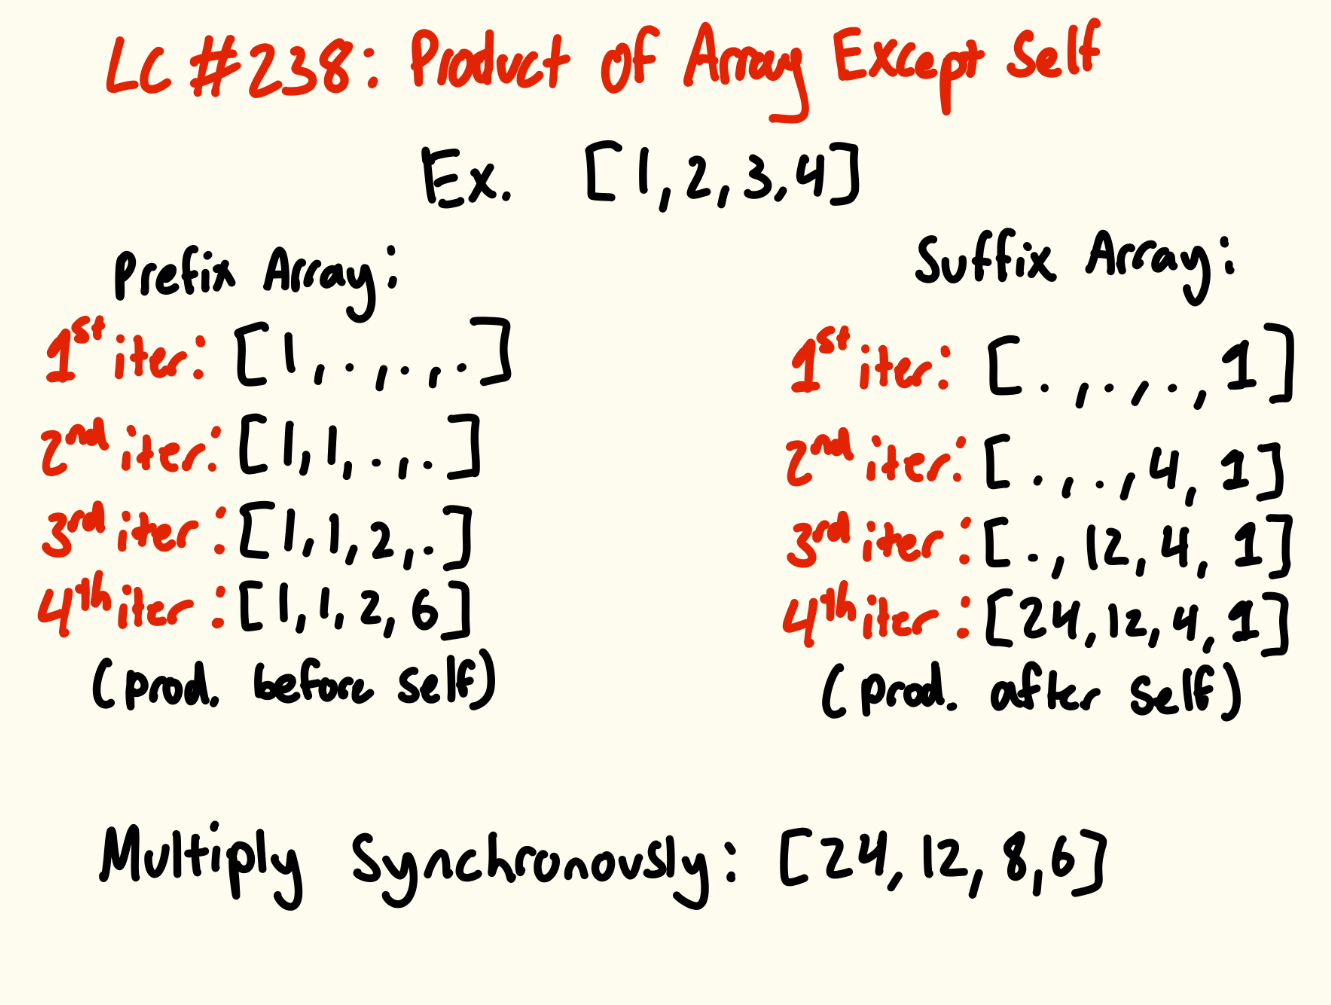 LC #238: Product of Array Except Self
Ex. [1,2,3,4]
Prefix Array:
1st iter: [1, ., ., .]
2nd iter: [1,1, ., .]
3rd iter: [1,1,2, .]
4th iter: [1,1,2,6]
(prod. before self)
Suffix Array:
1st iter: [., ., ., 1]
2nd iter: [., ., 4, 1]
3rd iter: [., 12, 4, 1]
4th iter: [24,12,4,1]
(prod. after self)
Multiply Synchronously: [24,12,8,6]